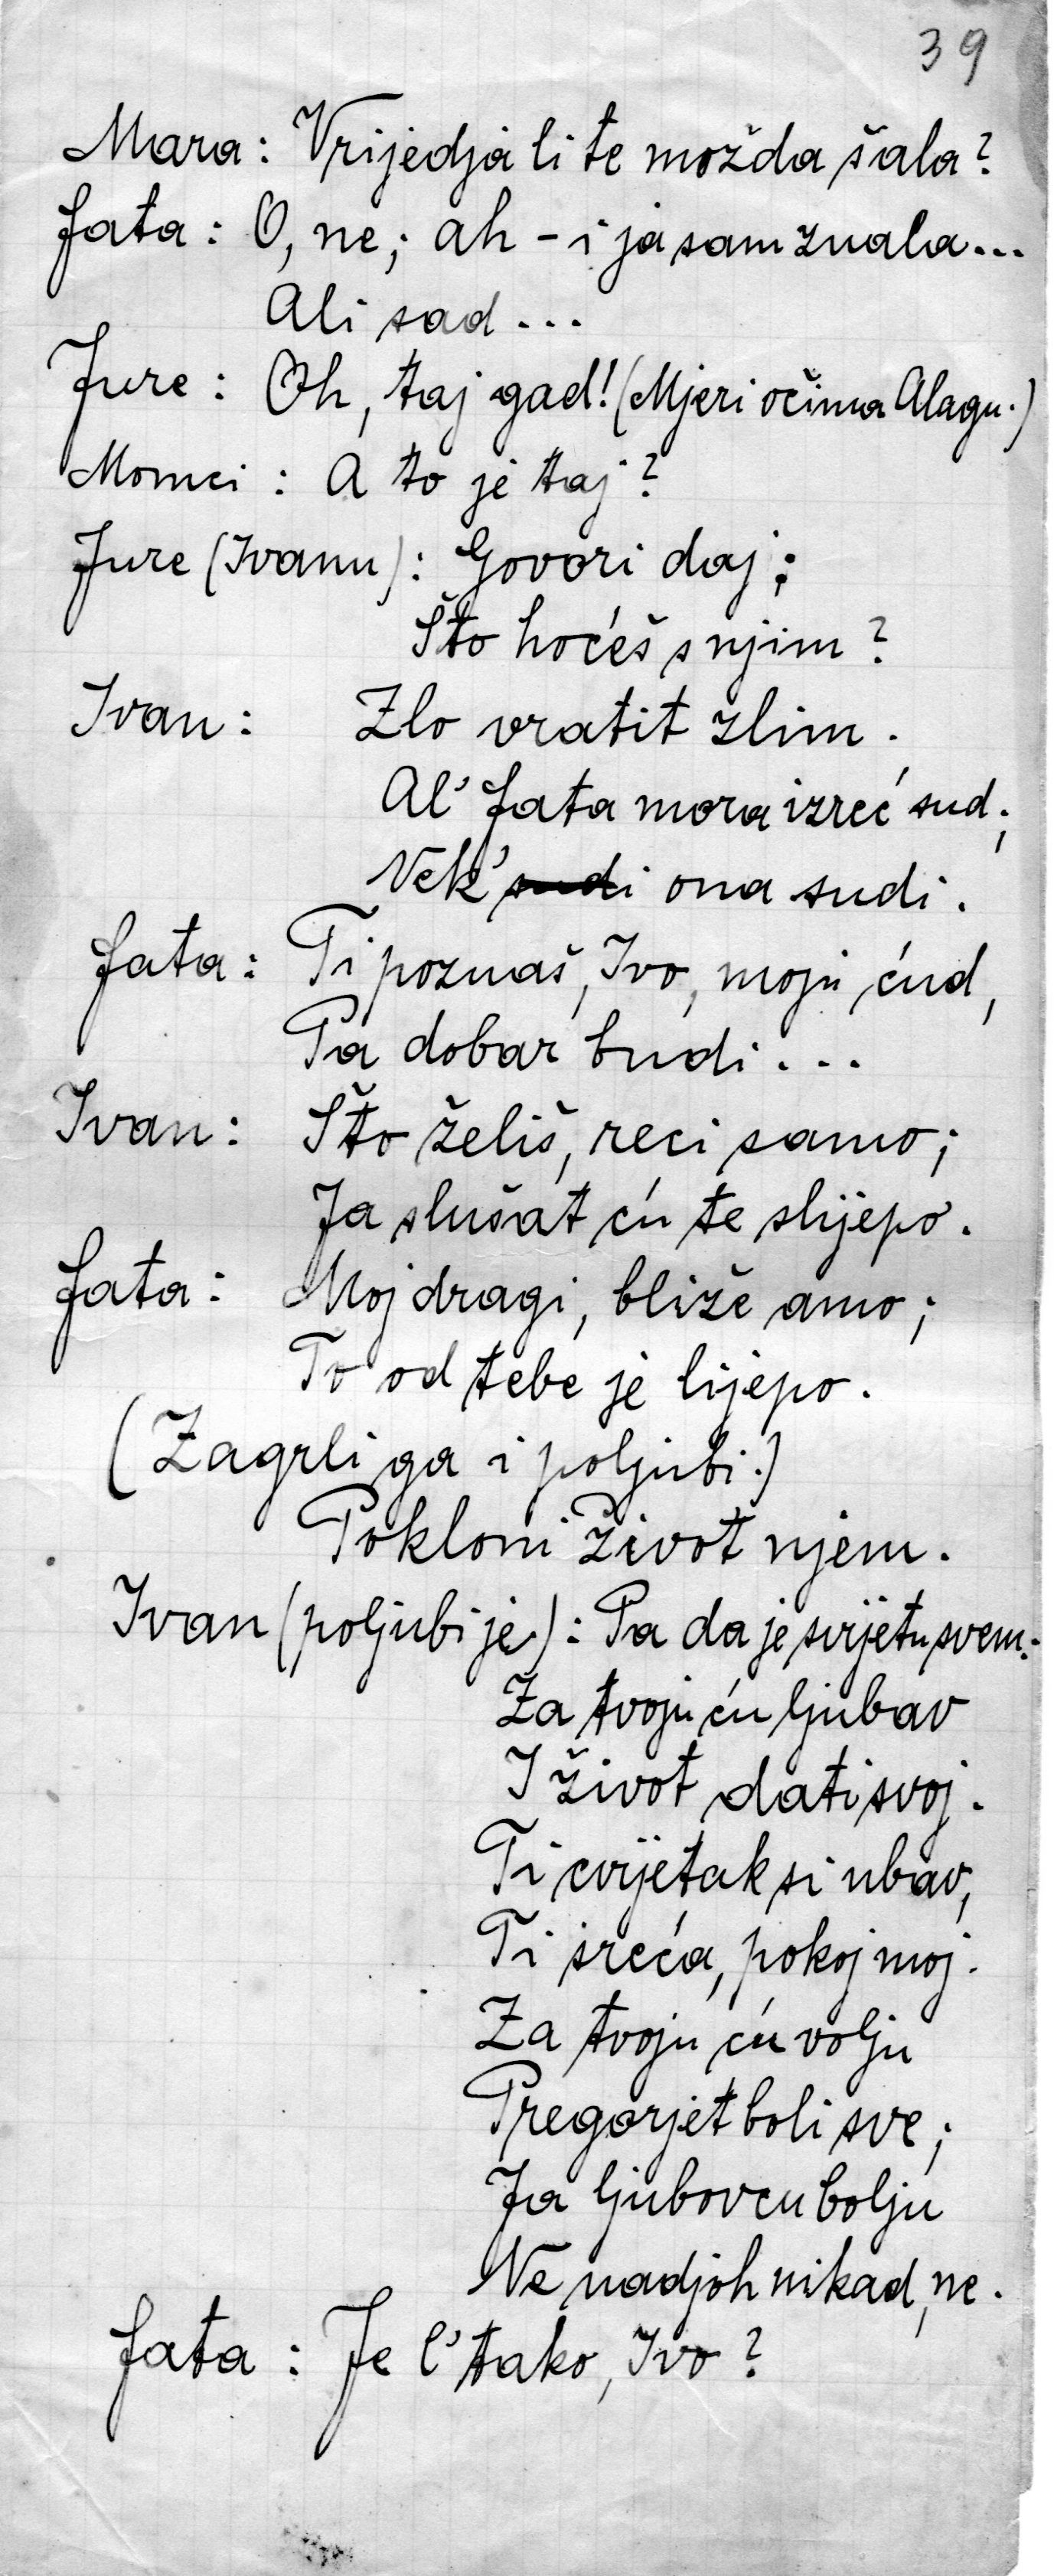 39
Mara: Vrijedja li te možda šala?
Fata: O, ne; ah - i ja sam znala...
Ali sad ...
Jure: Oh, taj gad! (Mjeri očima Alagu.)
Momci: A to je taj?
Jure (Ivanu): Govori daj;
Što hoćeš s njim?
Ivan: Zlo vratit zlim.
Al' Fata mora izreć sud;
Nek' sudi ona sudi.
Fata: Ti poznaš, Ivo, moju ćud,
Pa dobar budi...
Ivan: Što želiš, reci samo;
Ja slušat ću te slijepo.
Fata: Moj dragi, bliže amo;
To od tebe je lijepo.
(Zagrli ga i poljubi.)
Pokloni život njem.
Ivan (poljubi je): Pa da je svijetu svem.
Za tvoju ću ljubav
I život dati svoj.
Ti cvijetak si ubav,
Ti sreća, pokoj moj.
Za tvoju ću volju
Pregorjet boli sve;
Ja ljubovcu bolju
Ne nadjoh nikad, ne.
Fata: Je l' tako, Ivo?